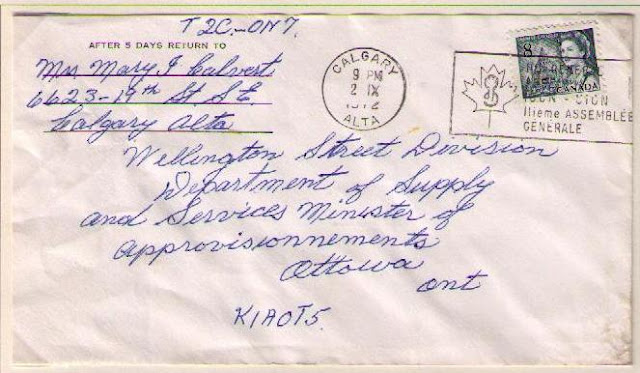 T2C-0N7.
AFTER 5 DAYS RETURN TO
Mrs Mary I Calvert
6623-19th St S E.
Calgary Alta
CALGARY
9 PM
2 IX
1972
ALTA
8
CANADA
IIième ASSEMBLÉE
GÉNÉRALE
Wellington Street Division
Department of Supply
and Services Minister of
approvisionnements
Ottowa
ont
K1A0T5.